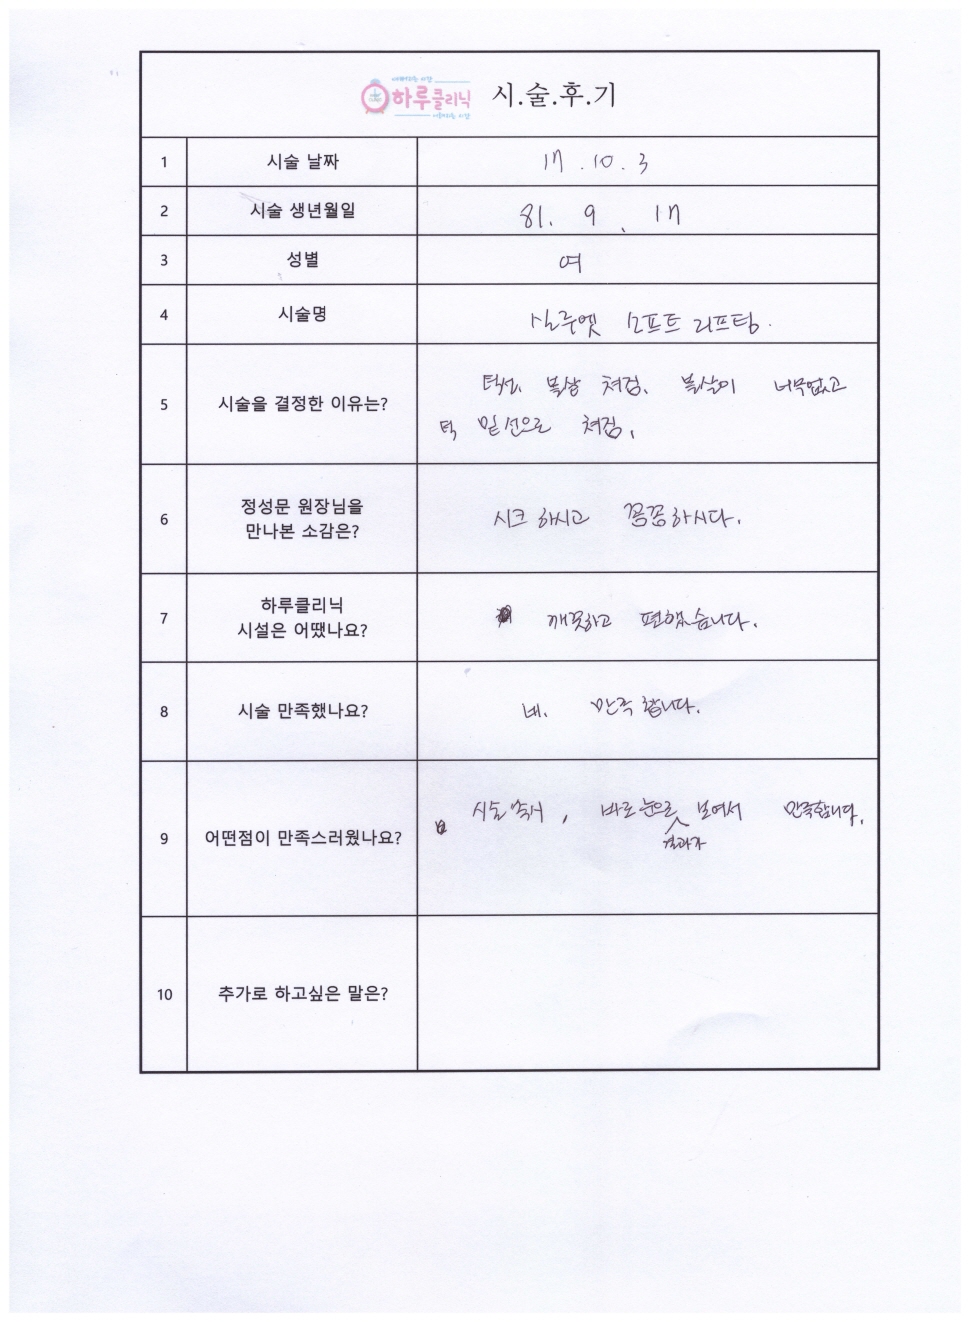 하루클리닉 시.술.후.기
1 시술 날짜 17. 10. 3
2 시술 생년월일 81. 9. 17
3 성별 여
4 시술명 실루엣 소프트 리프팅.
5 시술을 결정한 이유는?
턱선, 볼살 쳐짐, 볼살이 너무없고
턱 밑선으로 쳐짐.
6 정성문 원장님을
만나본 소감은?
시크하시고 꼼꼼하시다.
7 하루클리닉
시설은 어땠나요?
깨끗하고 편했습니다.
8 시술 만족했나요? 네. 만족합니다.
9 어떤점이 만족스러웠나요? 시술 방식, 바로 눈으로 결과가 보여서 만족합니다.
10 추가로 하고싶은 말은?